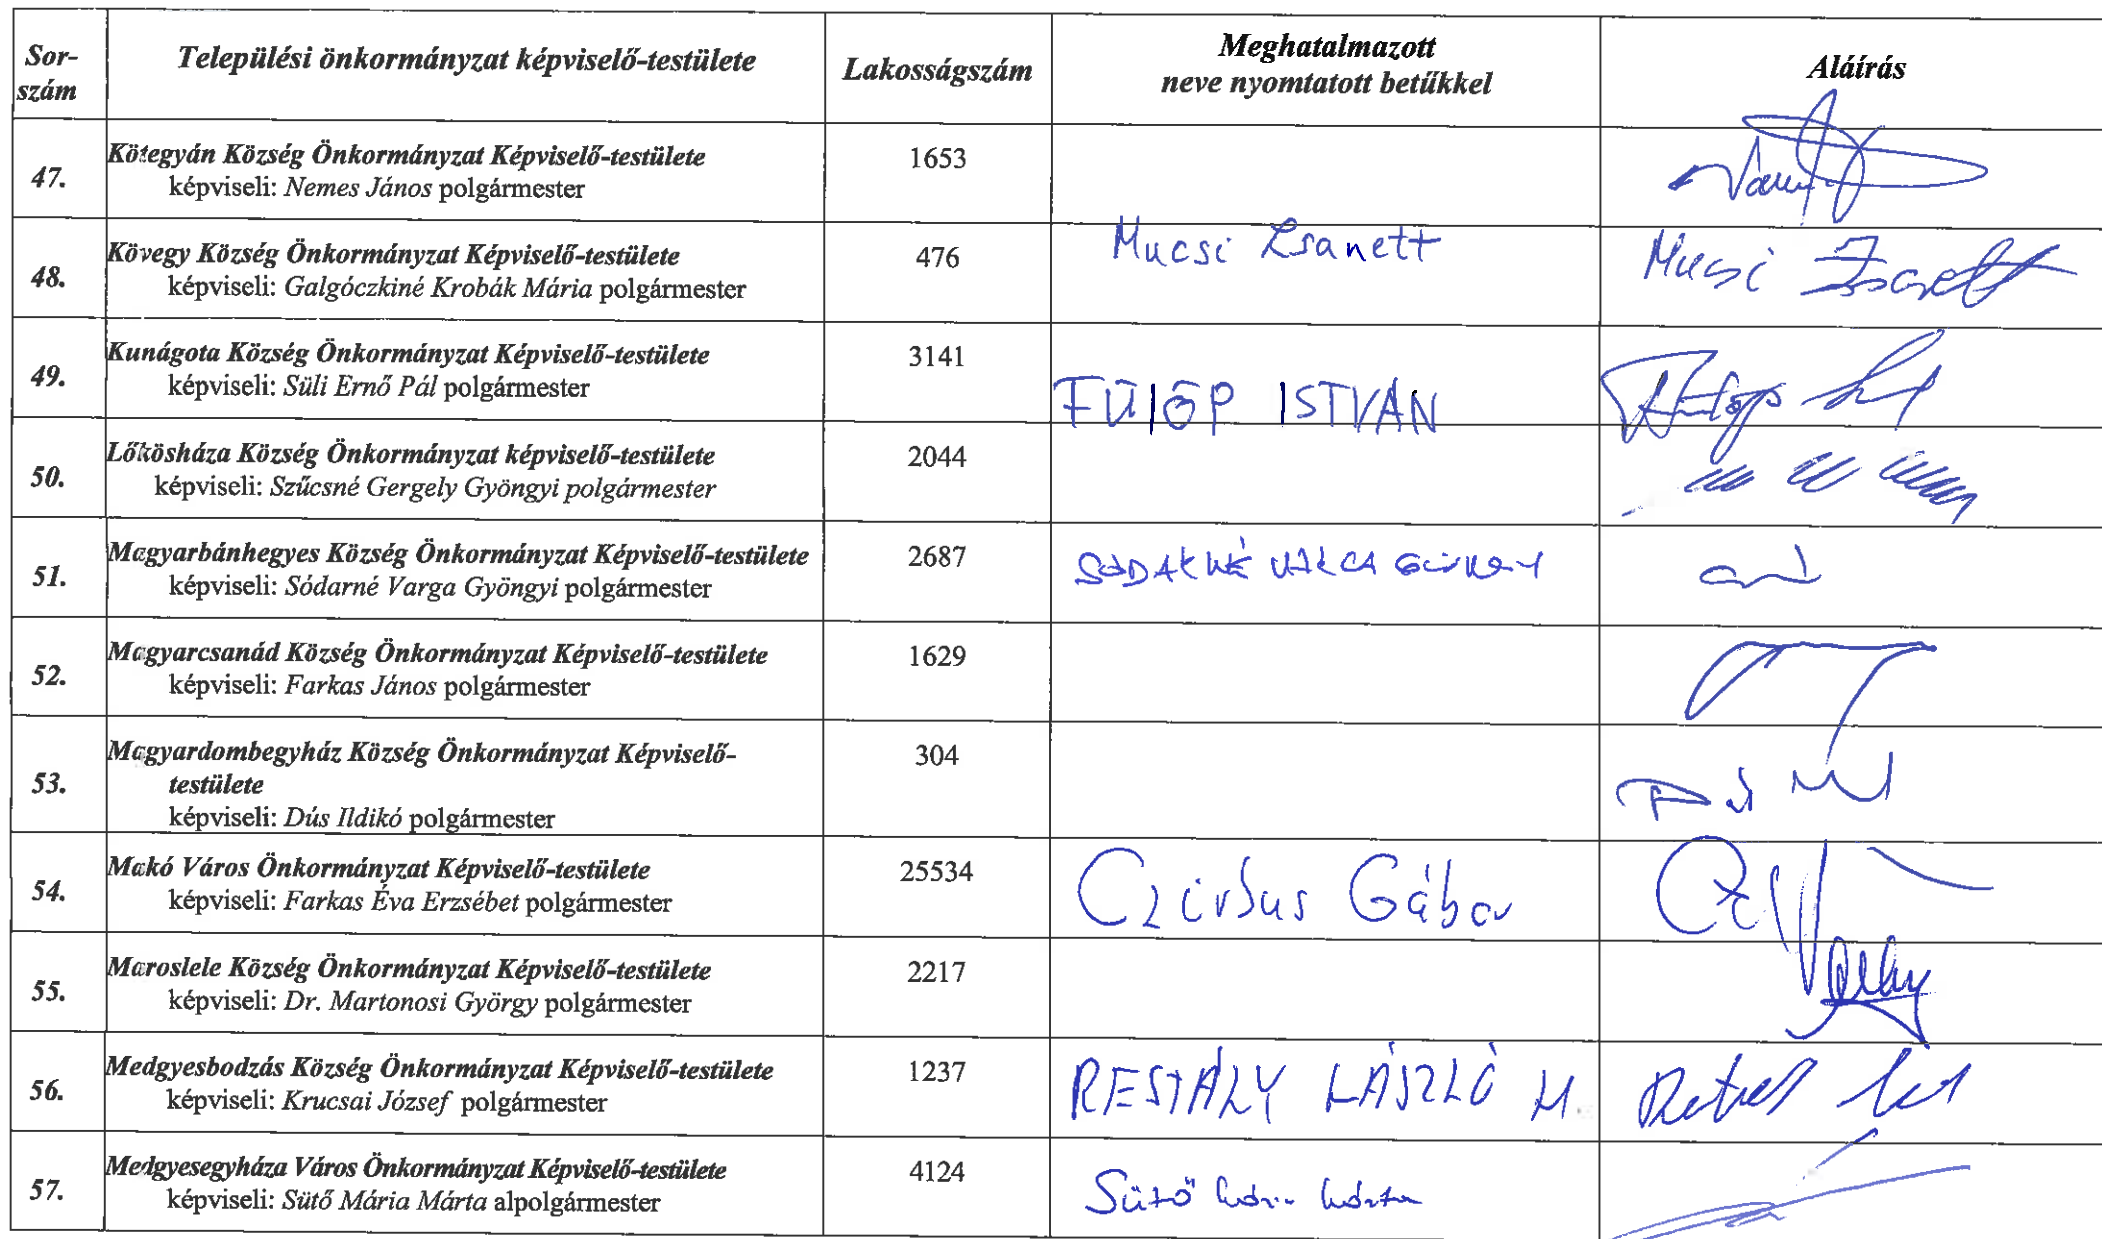 Sor-
szám
Települési önkormányzat képviselő-testülete
Lakosságszám
Meghatalmazott
neve nyomtatott betűkkel
Aláírás
47.
Kötegyán Község Önkormányzat Képviselő-testülete
képviseli: Nemes János polgármester
1653
48.
Kövegy Község Önkormányzat Képviselő-testülete
képviseli: Galgóczkiné Krobák Mária polgármester
476
Mucsi Zsanett
Mucsi Zsanett
49.
Kunágota Község Önkormányzat Képviselő-testülete
képviseli: Süli Ernő Pál polgármester
3141
FÜlÖP ISTVÁN
50.
Lőkösháza Község Önkormányzat képviselő-testülete
képviseli: Szűcsné Gergely Gyöngyi polgármester
2044
51.
Magyarbánhegyes Község Önkormányzat Képviselő-testülete
képviseli: Sódarné Varga Gyöngyi polgármester
2687
SÓDARNÉ VARGA GYÖNGYI
52.
Magyarcsanád Község Önkormányzat Képviselő-testülete
képviseli: Farkas János polgármester
1629
53.
Magyardombegyház Község Önkormányzat Képviselő-
testülete
képviseli: Dús Ildikó polgármester
304
54.
Makó Város Önkormányzat Képviselő-testülete
képviseli: Farkas Éva Erzsébet polgármester
25534
Czirbus Gábor
55.
Maroslele Község Önkormányzat Képviselő-testülete
képviseli: Dr. Martonosi György polgármester
2217
56.
Medgyesbodzás Község Önkormányzat Képviselő-testülete
képviseli: Krucsai József polgármester
1237
RESTÁLY LÁSZLÓ M.
57.
Medgyesegyháza Város Önkormányzat Képviselő-testülete
képviseli: Sütő Mária Márta alpolgármester
4124
Sütő Mária Márta